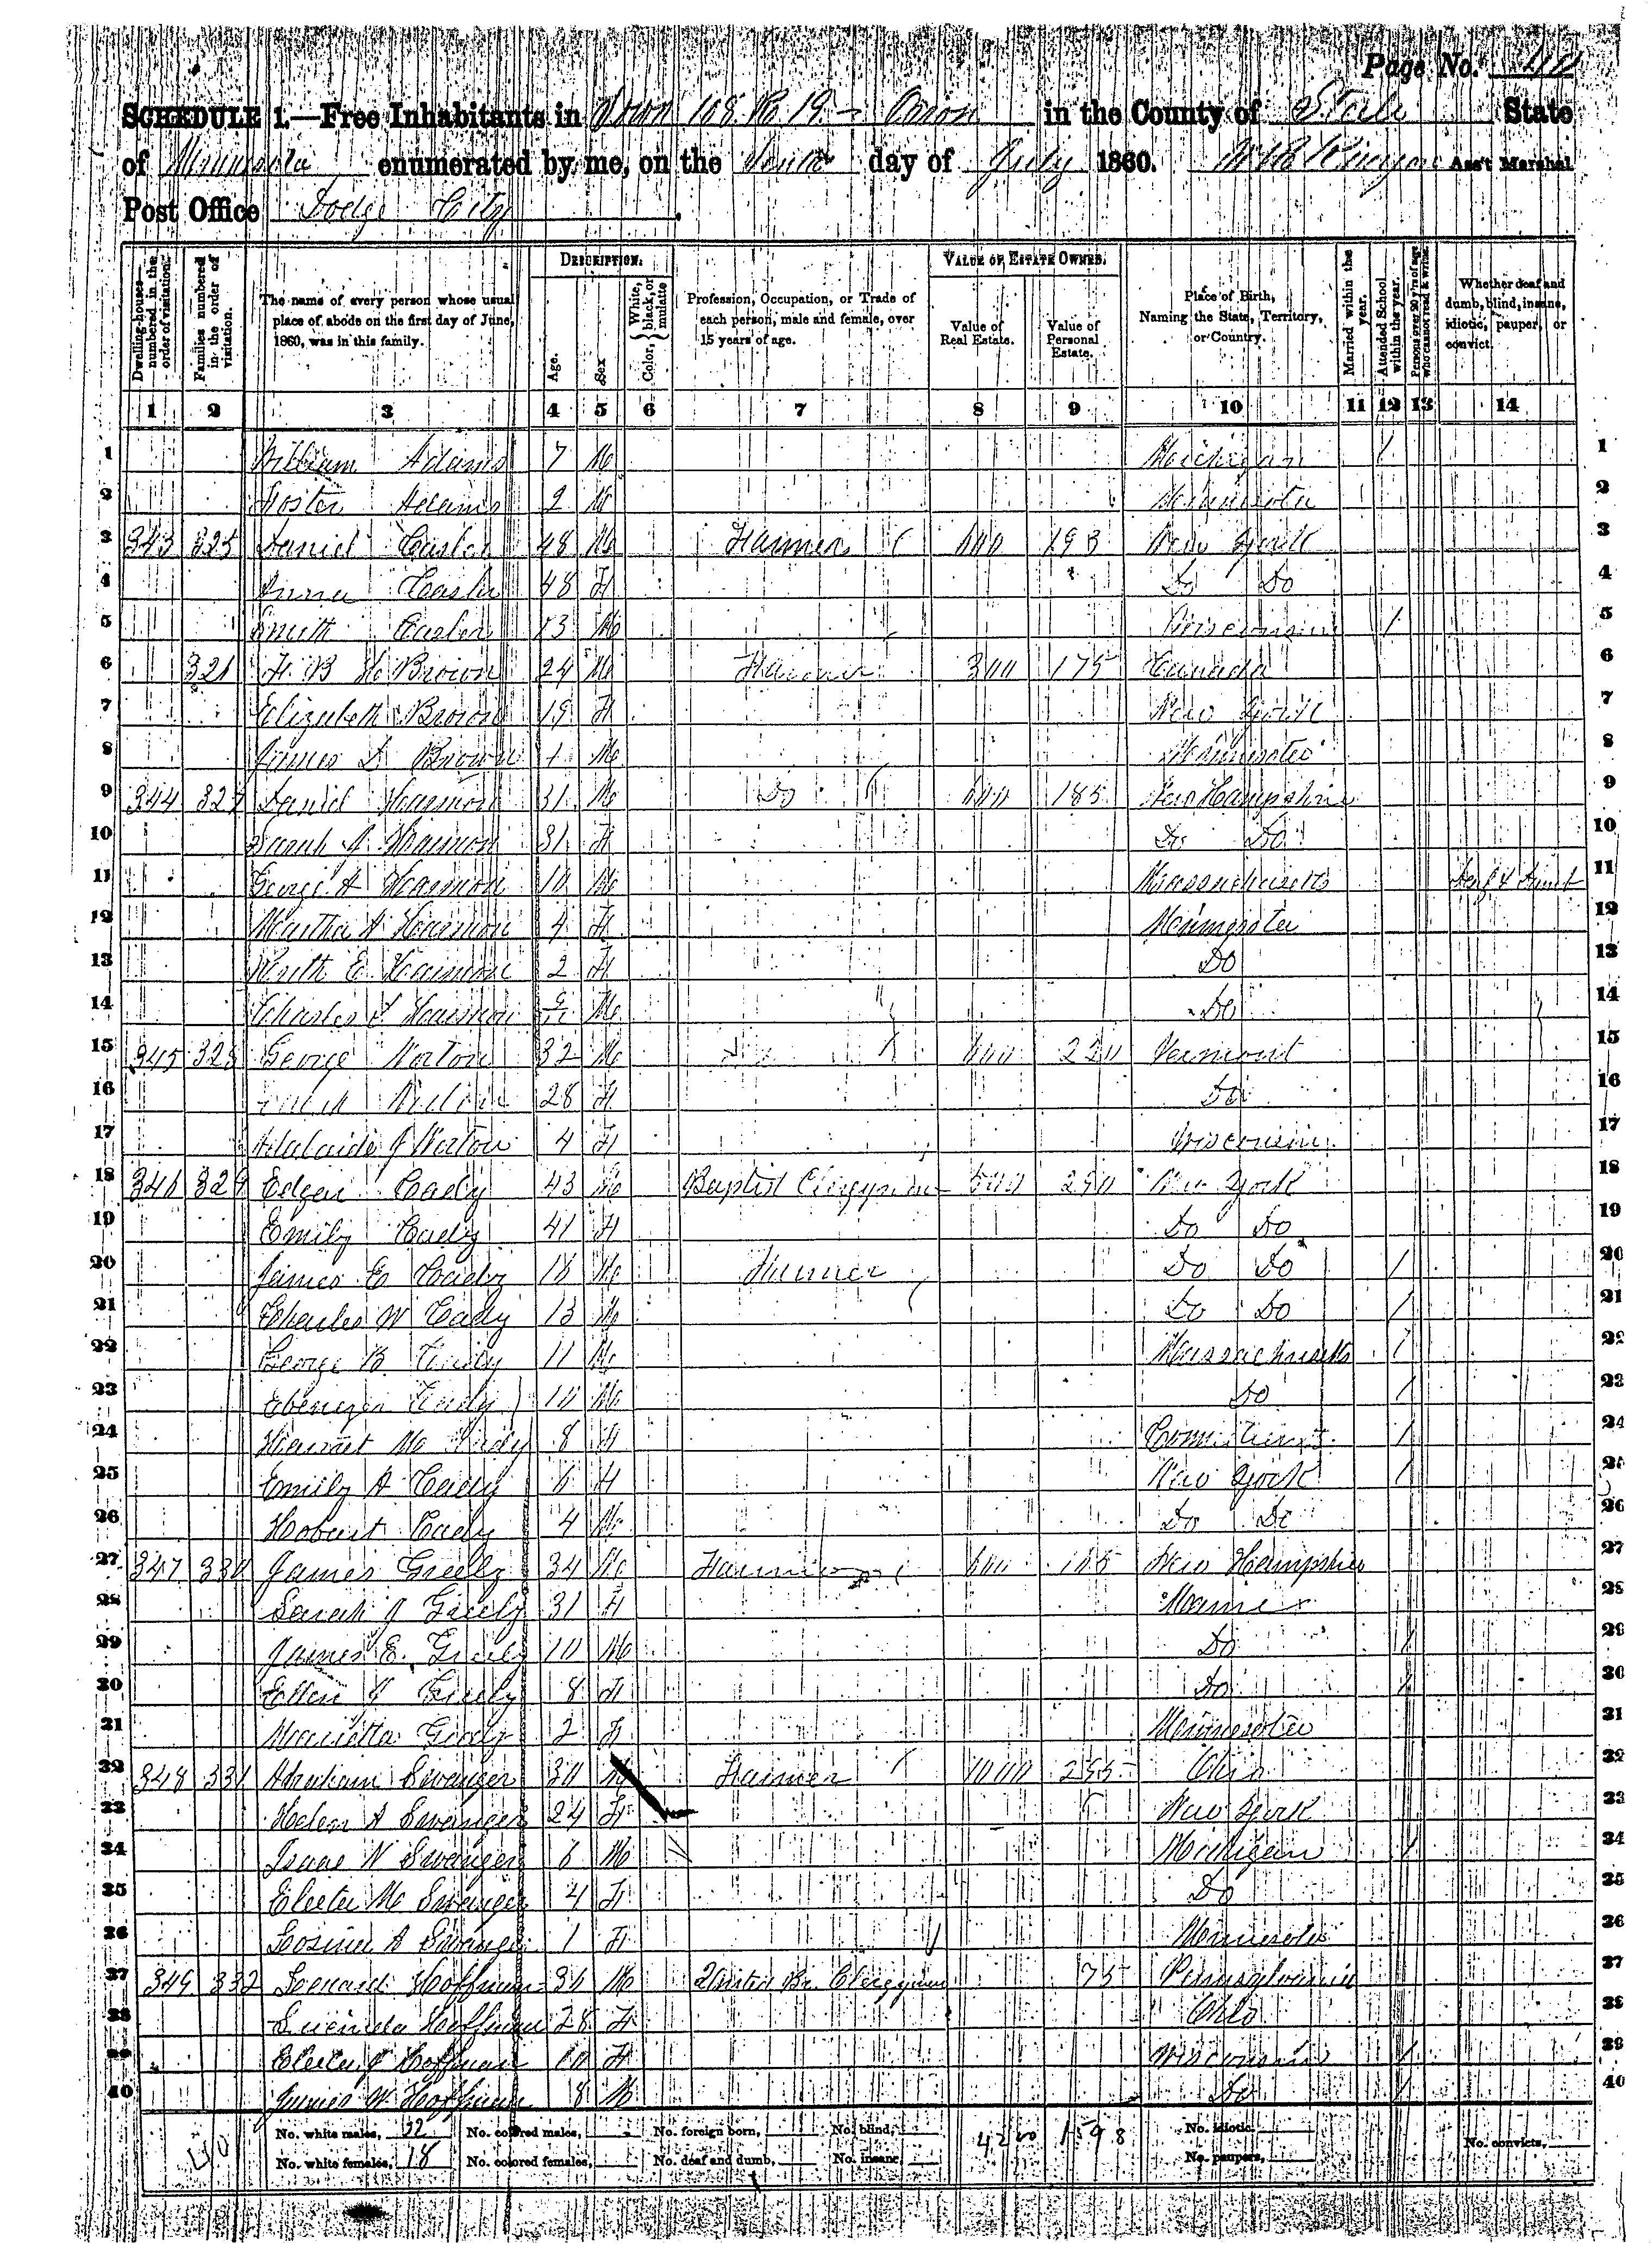 Page No. 40
SCHEDULE 1.—Free Inhabitants in Town 108 R 19 - Orion in the County of Steele State
of Minnesota enumerated by me, on the Tenth day of July 1860. Ass't Marshal
Post Office Dodge City
Dwelling-houses—numbered in the order of visitation.
Families numbered in the order of visitation.
The name of every person whose usual place of abode on the first day of June, 1860, was in this family.
DESCRIPTION.
Age.
Sex
Color, { White, black, or mulatto
Profession, Occupation, or Trade of each person, male and female, over 15 years of age.
VALUE OF ESTATE OWNED.
Value of Real Estate.
Value of Personal Estate.
Place of Birth, Naming the State, Territory, or Country.
Married within the year.
Attended School within the year.
Persons over 20 y'rs of age who cannot read & write.
Whether deaf and dumb, blind, insane, idiotic, pauper, or convict.
1 2 3 4 5 6 7 8 9 10 11 12 13 14
1 William Adams 7 M Michigan / 1
2 Foster Adams 2 M Minnesota 2
3 343 325 Daniel Casler 48 M Farmer 600 193 New York 3
4 Anna Casler 48 F Do Do 4
5 Smith Casler 13 M Wisconsin / 5
6 326 H. B Brown 24 M Farmer 300 175 Canada 6
7 Elizabeth Brown 19 F New York 7
8 James D Brown 1 M Minnesota 8
9 344 327 Daniel Harmon 31 M Do 600 185 New Hampshire 9
10 Sarah A Harmon 31 F Do Do 10
11 George A Harmon 10 M Massachusetts Deaf & Dumb 11
12 Martha A Harmon 4 F Minnesota 12
13 Ruth E Harmon 2 F Do 13
14 Charles Harmon M Do 14
15 345 328 George Norton 32 M Do 600 220 Vermont 15
16 Norton 28 F Do 16
17 Adalaide J Norton 4 F Wisconsin 17
18 346 329 Edgar Cady 43 M Baptist Clergyman 500 290 New York 18
19 Emily Cady 41 F Do Do 19
20 James E Cady 16 M Farmer Do Do / 20
21 Charles W Cady 13 M Do Do / 21
22 George B Cady 11 M Massachusetts / 22
23 Ebenezer Cady 10 M Do / 23
24 Harriet M Cady 8 F Connecticut / 24
25 Emily A Cady 6 F New York / 25
26 Hobart Cady 4 M Do Do 26
27 347 330 James Greely 34 M Farmer 600 105 New Hampshire 27
28 Sarah J Greely 31 F Maine 28
29 James E. Greely 10 M Do / 29
30 Ellen J Greely 8 F Do / 30
31 Marietta Greely 2 F Minnesota 31
32 348 331 Abraham Swanger 30 M Farmer 1000 255 Ohio 32
33 Helen A Swanger 24 F New York 33
34 Isaac N Swanger 6 M Michigan / 34
35 Electa M Swanger 4 F Do 35
36 Rosina A Swanger 1 F Minnesota 36
37 349 332 Leonard Hoffman 36 M United Br. Clergyman 75 Pennsylvania 37
38 Lucinda Hoffman 28 F Ohio 38
39 Electa J Hoffman 10 F Wisconsin / 39
40 James W Hoffman 8 M Do / 40
40
No. white males, 22 No. colored males, No. foreign born, No. blind, 4200 1598 No. idiotic
No. white females, 18 No. colored females, No. deaf and dumb, No. insane, No. paupers, No. convicts,